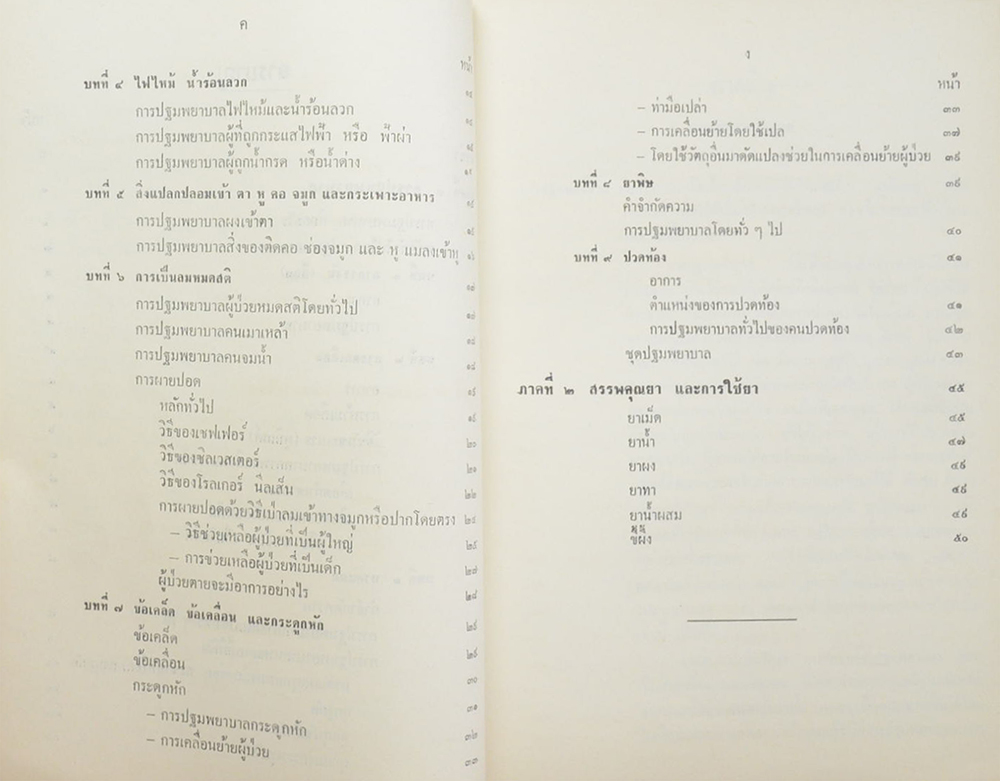 ค
หน้า
บทที่ ๔ ไฟไหม้ น้ำร้อนลวก
การปฐมพยาบาลไฟไหม้และน้ำร้อนลวก
การปฐมพยาบาลผู้ที่ถูกกระแสไฟฟ้า หรือ ฟ้าผ่า
การปฐมพยาบาลผู้ถูกน้ำกรด หรือน้ำด่าง
บทที่ ๕ สิ่งแปลกปลอมเข้า ตา หู คอ จมูก และกระเพาะอาหาร
การปฐมพยาบาลผงเข้าตา
การปฐมพยาบาลสิ่งของติดคอ ช่องจมูก และ หู แมลงเข้าหู
บทที่ ๖ การเป็นลมหมดสติ
การปฐมพยาบาลผู้ป่วยหมดสติโดยทั่วไป
การปฐมพยาบาลคนเมาเหล้า
การปฐมพยาบาลคนจมน้ำ
การผายปอด
หลักทั่วไป
วิธีของเชฟเฟอร์ ๒๐
วิธีของซิลเวสเตอร์ ๒๑
วิธีของโรลเกอร์ นีลเส็น ๒๒
การผายปอดด้วยวิธีเป่าลมเข้าทางจมูกหรือปากโดยตรง ๒๔
– วิธีช่วยเหลือผู้ป่วยที่เป็นผู้ใหญ่
– การช่วยเหลือผู้ป่วยที่เป็นเด็ก ๒๗
ผู้ป่วยตายจะมีอาการอย่างไร ๒๘
บทที่ ๗ ข้อเคล็ด ข้อเคลื่อน และกระดูกหัก ๒๙
ข้อเคล็ด ๒๙
ข้อเคลื่อน ๓๐
กระดูกหัก ๓๑
– การปฐมพยาบาลกระดูกหัก ๓๒
– การเคลื่อนย้ายผู้ป่วย ๓๓
ง
หน้า
– ท่ามือเปล่า ๓๓
– การเคลื่อนย้ายโดยใช้เปล ๓๗
– โดยใช้วัตถุอื่นมาดัดแปลงช่วยในการเคลื่อนย้ายผู้ป่วย ๓๙
บทที่ ๘ ยาพิษ ๓๙
คำจำกัดความ
การปฐมพยาบาลโดยทั่ว ๆ ไป ๔๐
บทที่ ๙ ปวดท้อง ๔๑
อาการ
ตำแหน่งของการปวดท้อง ๔๑
การปฐมพยาบาลทั่วไปของคนปวดท้อง ๔๒
ชุดปฐมพยาบาล ๔๓
ภาคที่ ๒ สรรพคุณยา และการใช้ยา ๔๕
ยาเม็ด ๔๕
ยาน้ำ ๔๗
ยาผง ๔๘
ยาทา ๔๘
ยาน้ำผสม ๔๙
ขี้ผึ้ง ๕๐